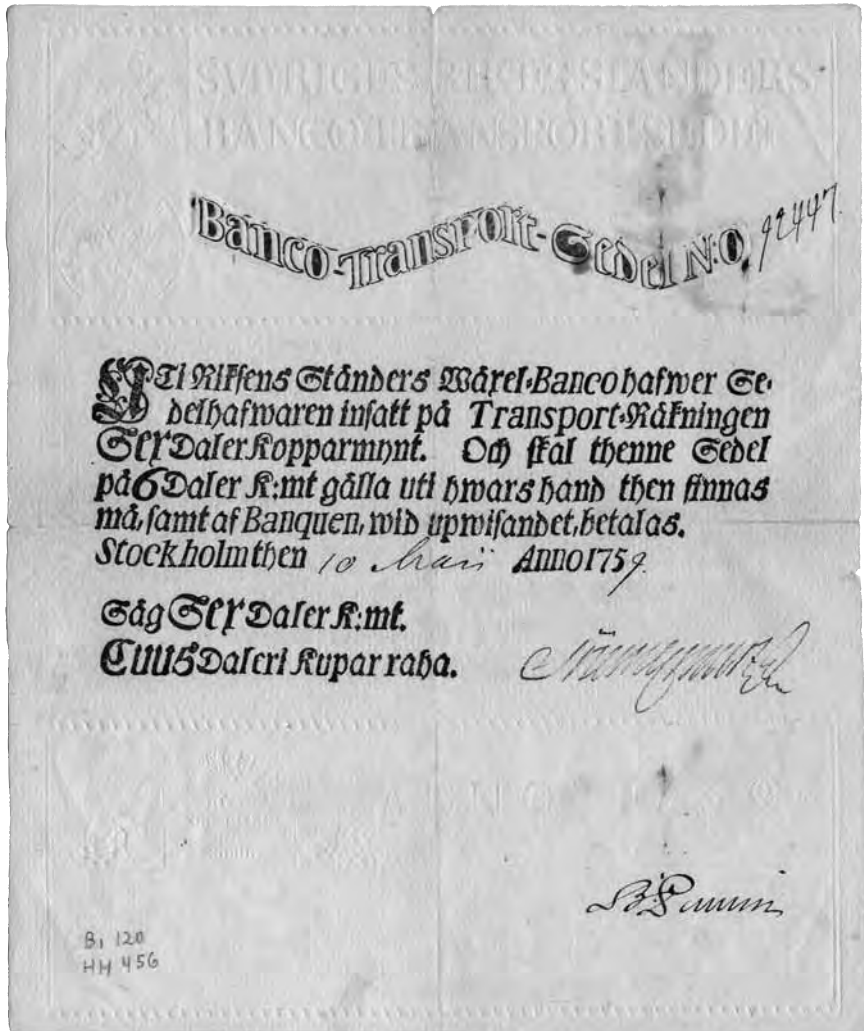 SVERIGES RIKES STÄNDERS
BANCO TRANSPORT SEDEL
Banco-Transport-Sedel N:O. 92447.
UTi Riksens Ständers Wäxel-Banco hafwer Se-
delhafwaren insatt på Transport-Räkningen
Sex Daler Kopparmynt. Och skal thenne Sedel
på 6 Daler K:mt gälla uti hwars hand then finnas
må, samt af Banquen, wid upwisandet, betalas.
Stockholm then 10 Maii Anno 1759.
Säg Sex Daler K:mt.
CUUS Daleri Kupar raha.
ANNO
Bi 120
HH 456